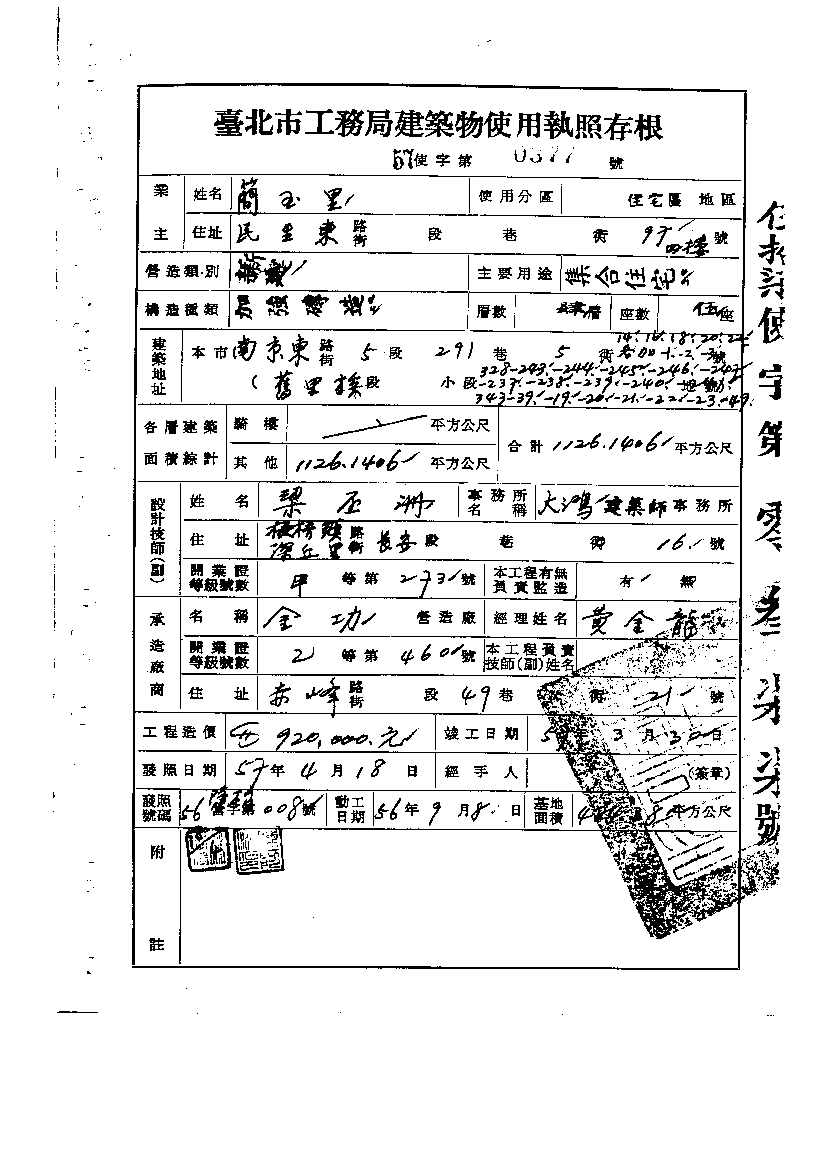 臺北市工務局建築物使用執照存根
57使字第 0377 號
業主 姓名 簡玉里 使用分區 住宅區地區
住址 民生東路街 段 巷 街 97 四樓 號
營造類別 主要用途 集合住宅
構造種類 加強磚造 層數 層 座數 伍座
建築地址 本市南京東路街 5段 291巷 5街 14.16.18.20.22 號
(舊里族段 小段 328-243.-244.-245.-246.-247
-237.-238.-239.-240. 地號)
343-39.-19.-20.-21.-22.-23.-49.
各層建築面積綜計 騎樓 平方公尺 合計 1126.1406 平方公尺
其他 1126.1406 平方公尺
設計技師(副) 姓名 梁丕洲 事務所名稱 大鴻建築師事務所
住址 路街 長安段 巷 街 16.號
開業證等級號數 甲等第273號 本工程有無負責監造 有 無
承造廠商 名稱 金功 營造廠 經理姓名 黃金龍
開業證等級號數 乙等第460號 本工程負責技師(副)姓名
住址 赤峰路街 段 49巷 街 21 號
工程造價 920,000.元 竣工日期 57年3月30日
發照日期 57年4月18日 經手人 (簽章)
發照號碼 56 字第008號 動工日期 56年9月8.日 基地面積 平方公尺
附註
使字第零叁柒柒號